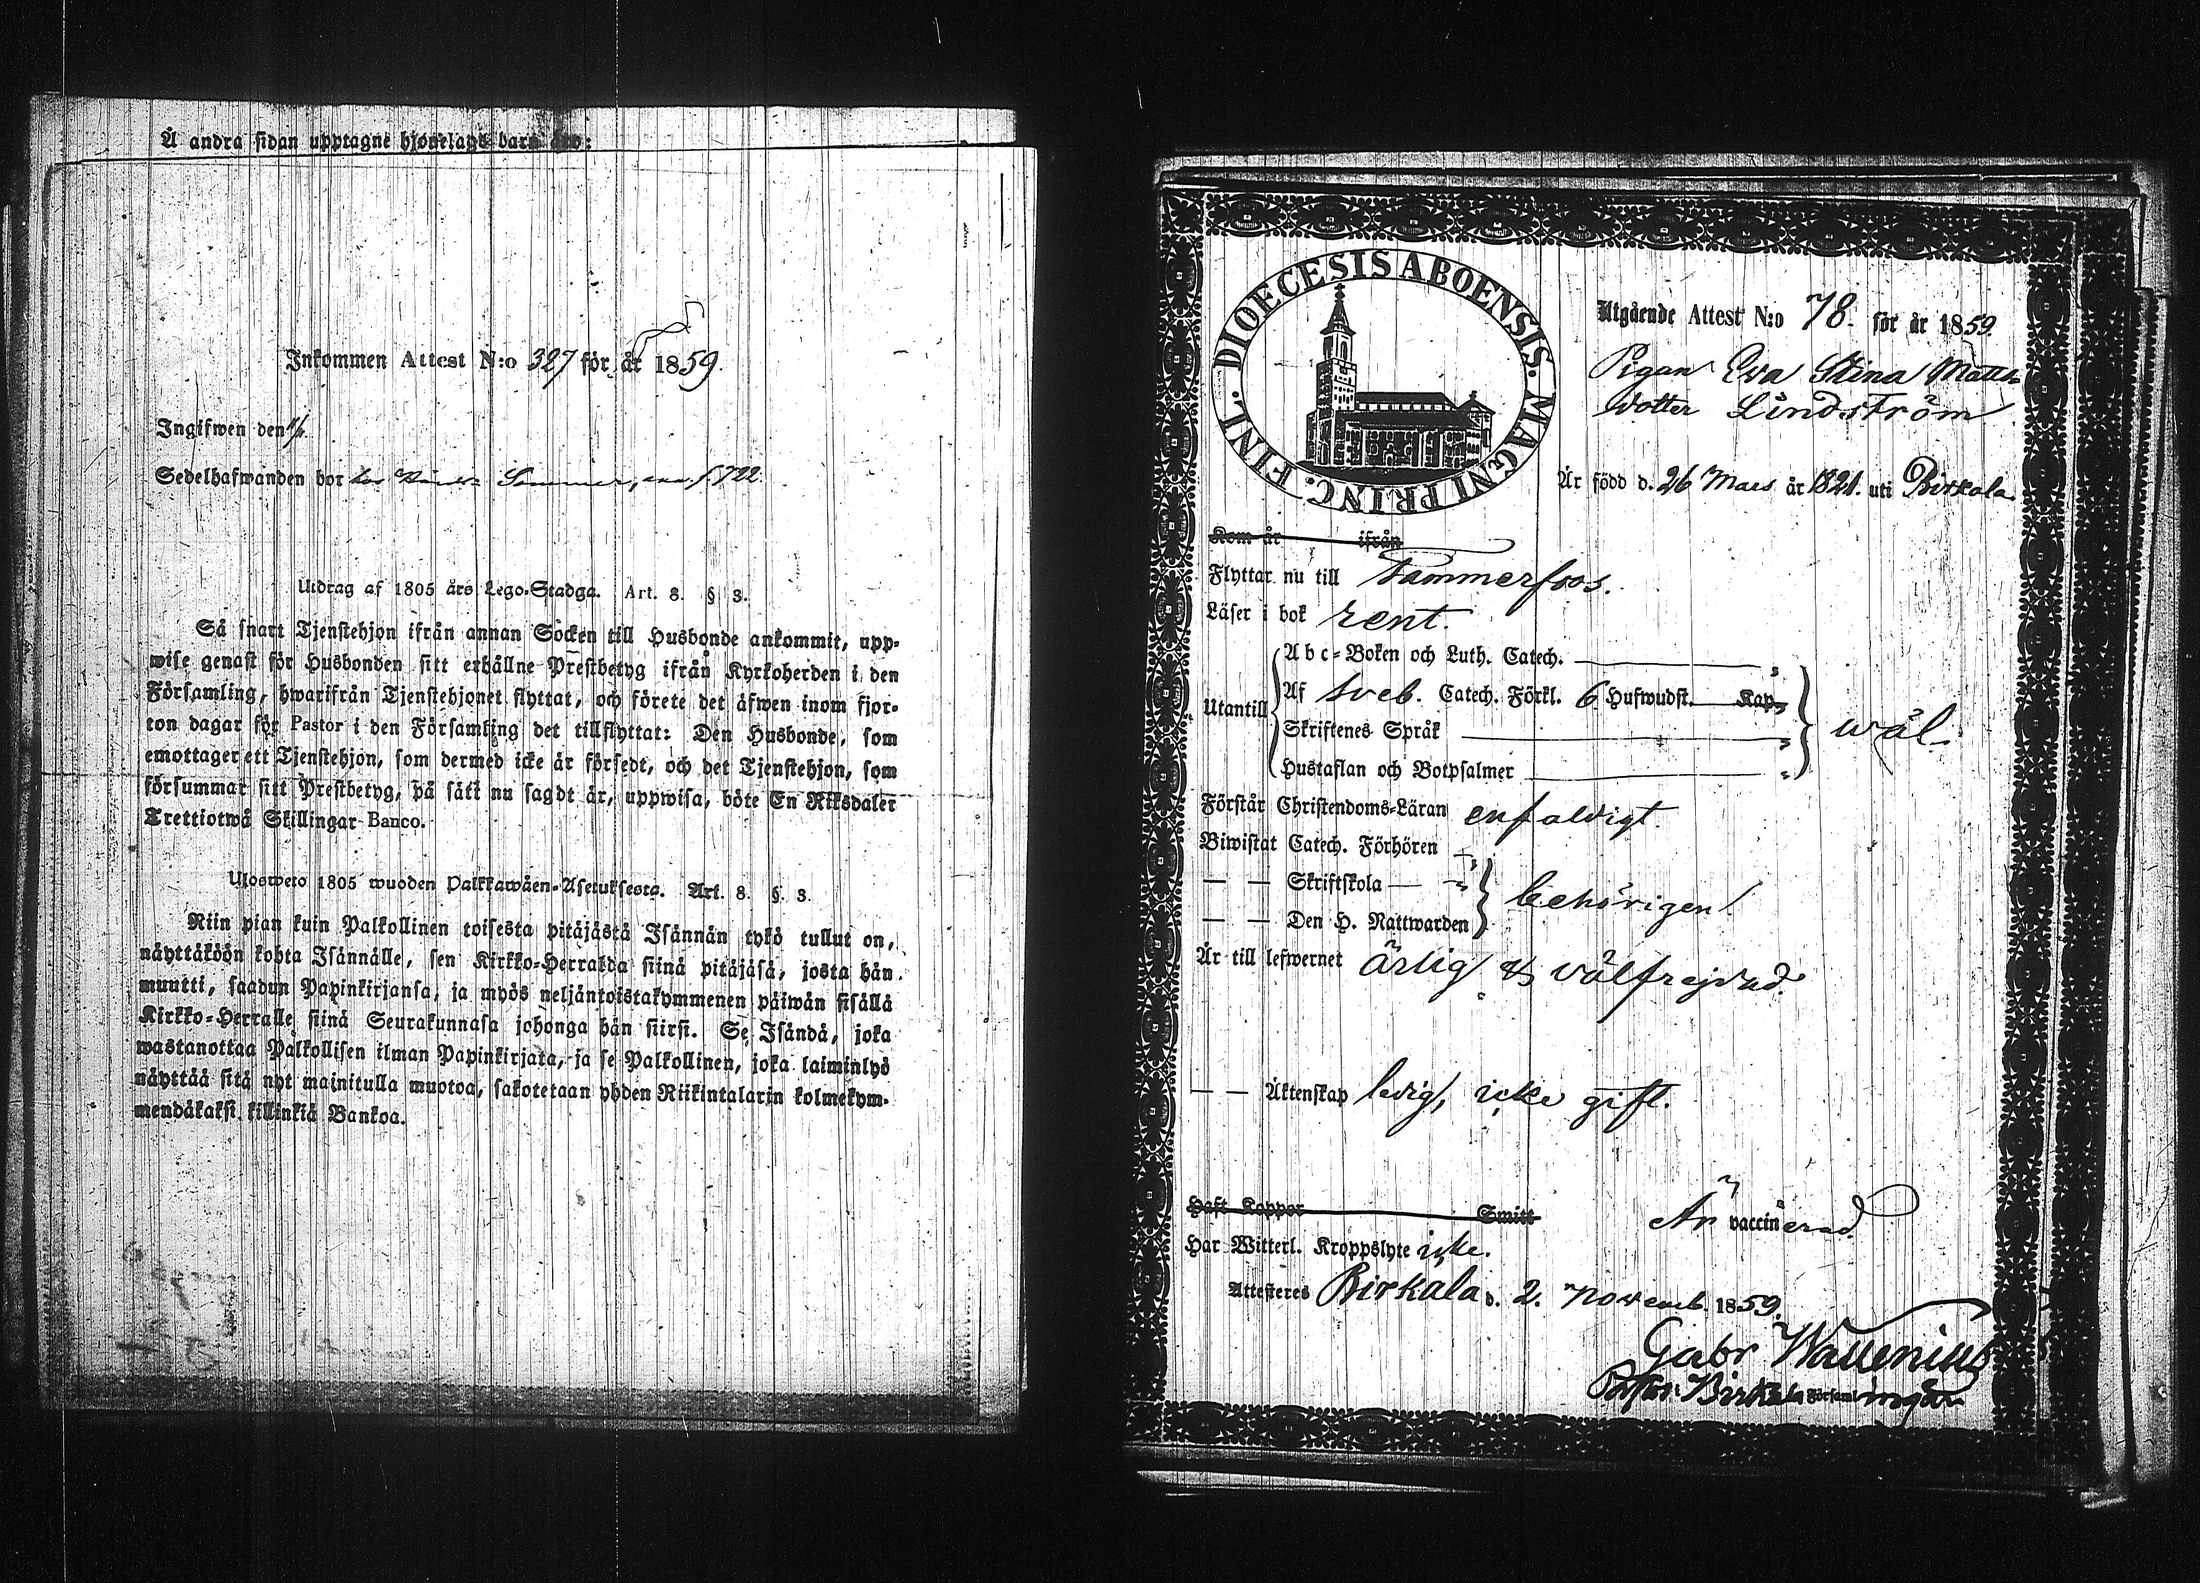 Å andra sidan upptagne hjonelags barn äro:
Inkommen Attest N:o 327 för år 1859.
Ingifwen den
Sedelhafwanden bor hos
Utdrag af 1805 års Lego-Stadga. Art. 8. § 3.
Så snart Tjenstehjon ifrån annan Socken till Husbonde ankommit, upp-
wise genast för Husbonden sitt erhållne Prestbetyg ifrån Kyrkoherden i den
Församling, hwarifrån Tjenstehjonet flyttat, och förete det äfwen inom fjor-
ton dagar för Pastor i den Församling det tillflyttat: Den Husbonde, som
emottager ett Tjenstehjon, som dermed icke är försedt, och det Tjenstehjon, som
försummar sitt Prestbetyg, på sätt nu sagdt är, uppwisa, böte En Riksdaler
Trettiotwå Skillingar Banco.
Ulosweto 1805 wuoden Palkkawäen-Asetuksesta. Art. 8. §. 3.
Niin pian kuin Palkollinen toisesta pitäjästä Isännän tykö tullut on,
näyttäköön kohta Isännälle, sen Kirkko-Herralda siinä pitäjäsä, josta hän
muutti, saadun Papinkirjansa, ja myös neljäntoistakymmenen päiwän sisällä
Kirkko-Herralle siinä Seurakunnasa johonga hän siirsi. Se Isändä, joka
wastanottaa Palkollisen ilman Papinkirjata, ja se Palkollinen, joka laiminlyö
näyttää sitä nyt mainitulla muotoa, sakotetaan yhden Riikintalarin kolmekym-
mendäkaksi killinkiä Bankoa.
DIOECESIS ABOENSIS. MAGNI PRINC. FINL.
Utgående Attest N:o 78. för år 1859.
Pigan Eva Stina Matts
dotter Lindström
Är född d. 26 Mars år 1821. uti Birkala.
Kom år ifrån
Flyttar nu till Tammerfors.
Läser i bok rent.
Utantill
Abc-Boken och Luth. Catech.
Af Sveb. Catech. Förkl. 6 Hufwudst. Kap.
Skriftenes Språk
Hustaflan och Botpsalmer
wäl.
Förstår Christendoms-Läran enfaldigt.
Biwistat Catech. Förhören
— — Skriftskola —
— — Den H. Nattwarden
behörigen
Är till lefwernet ärlig & välfrejdad.
— — Äktenskap ledig, icke gift.
Haft Koppor Smitt
Är vaccinerad.
Har Witterl. Kroppslyte icke.
Attesteres Birkala d. 2. Novemb. 1859.
Gabr Wallenius
Pastor i Birkala Församlingar